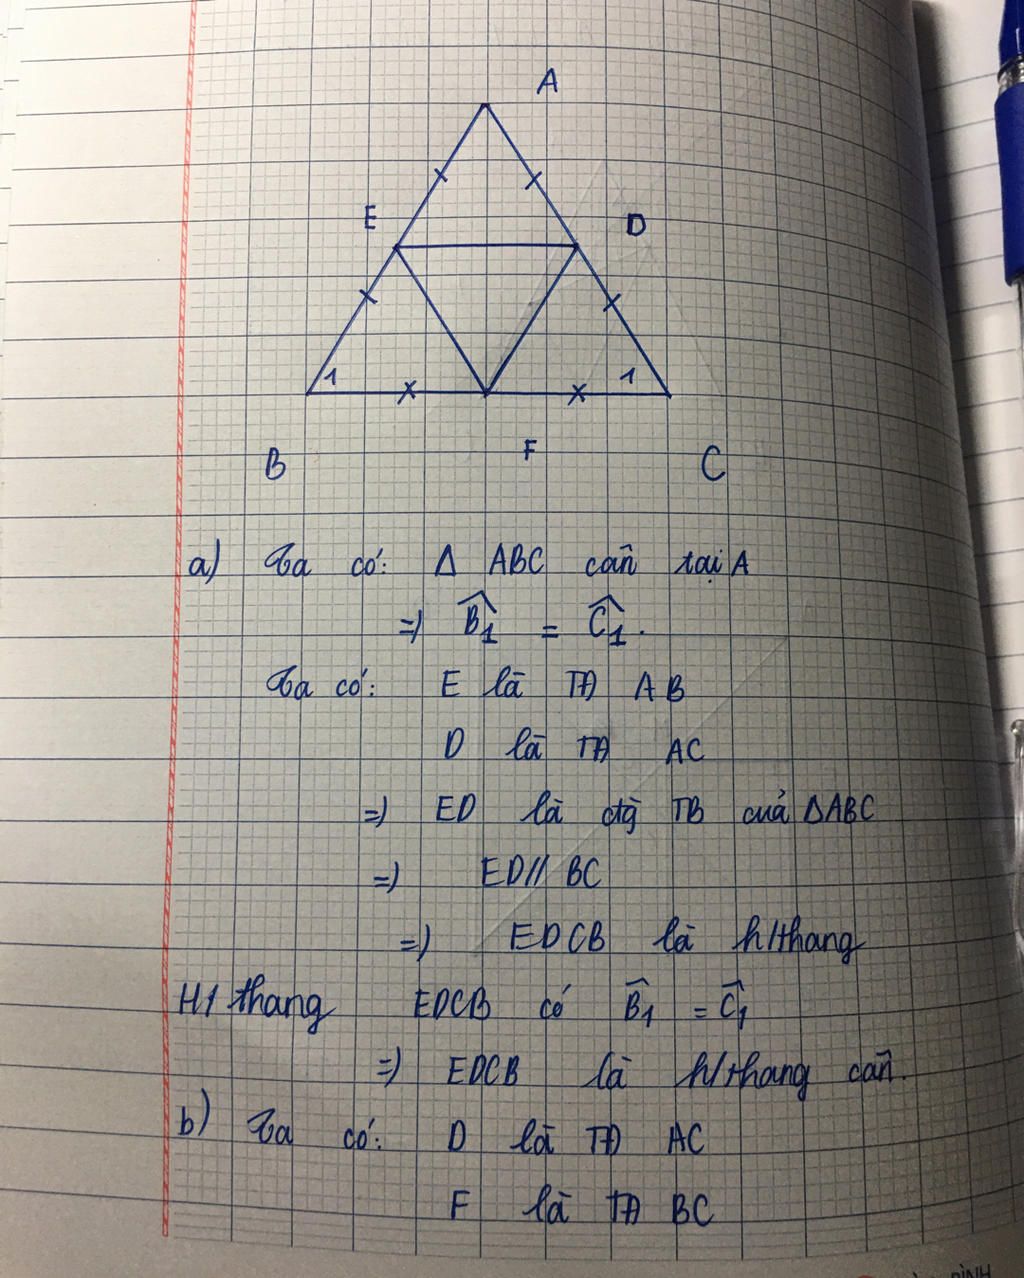 A
E
D
1
1
B
F
C
a) Ta có: Δ ABC cân tại A
=) B̂1 = Ĉ1.
Ta có: E là TĐ AB
D là TĐ AC
=) ED là đg TB của ΔABC
=) ED // BC
=) EDCB là h/thang
H/thang EDCB có B̂1 = Ĉ1
=) EDCB là h/thang cân.
b) Ta có: D là TĐ AC
F là TĐ BC